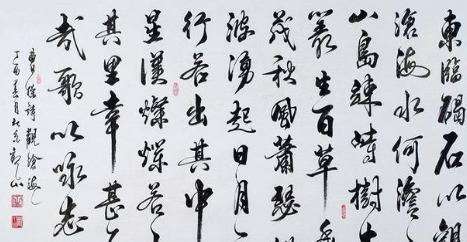 東臨碣石以觀
滄海水何澹
山島竦峙樹
叢生百草
茂秋風蕭瑟
波湧起日月
行若出其中
星漢燦爛若
其里幸甚
哉歌以咏志
曹操詩觀滄海
丁酉春月於京